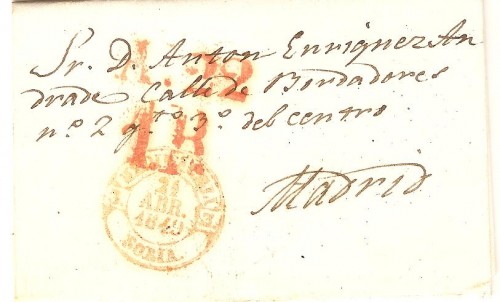 Sr. D. Anton Enriquez An
drade Calle de Bordadores
nº 2 qtº 3º del centro
Madrid
1R
21
ABR.
1849
SORIA.